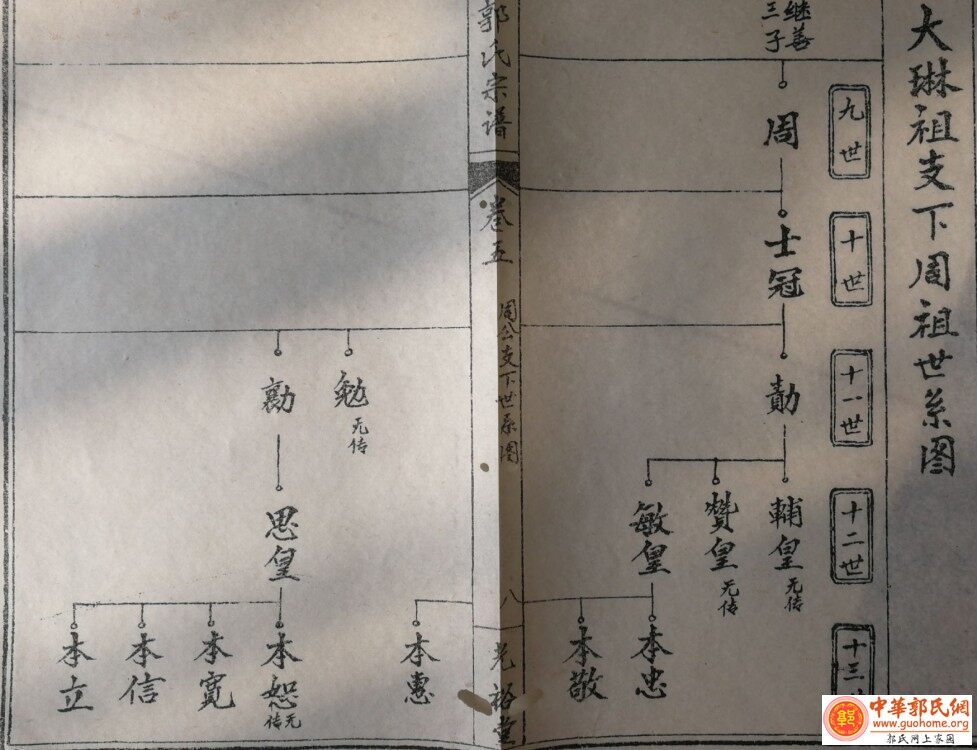 大琳祖支下周祖世系图
九世
十世
十一世
十二世
十三
继善
三子
周
士冠
勣
輔皇
无传
贊皇
无传
敏皇
本忠
本敬
郭氏宗谱
卷五
周公支下世系图
八
光裕堂
本惠
勉
无传
勷
思皇
本恕
无传
本寬
本信
本立
郭
中華郭氏網
www.guohome.org
郭氏网上家园